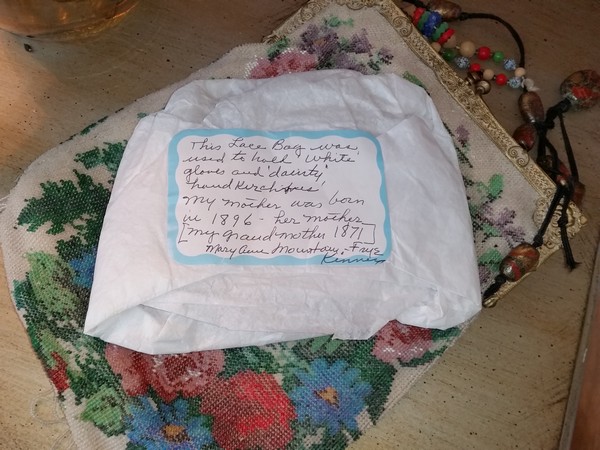 This Lace Bag was
used to hold 'white
gloves and 'dainty'
hand Kerchiefes'
My mother was born
in 1896 - her mother
[my grand-mother 1871]
Mary Anne Mountary - Frye
Kenner